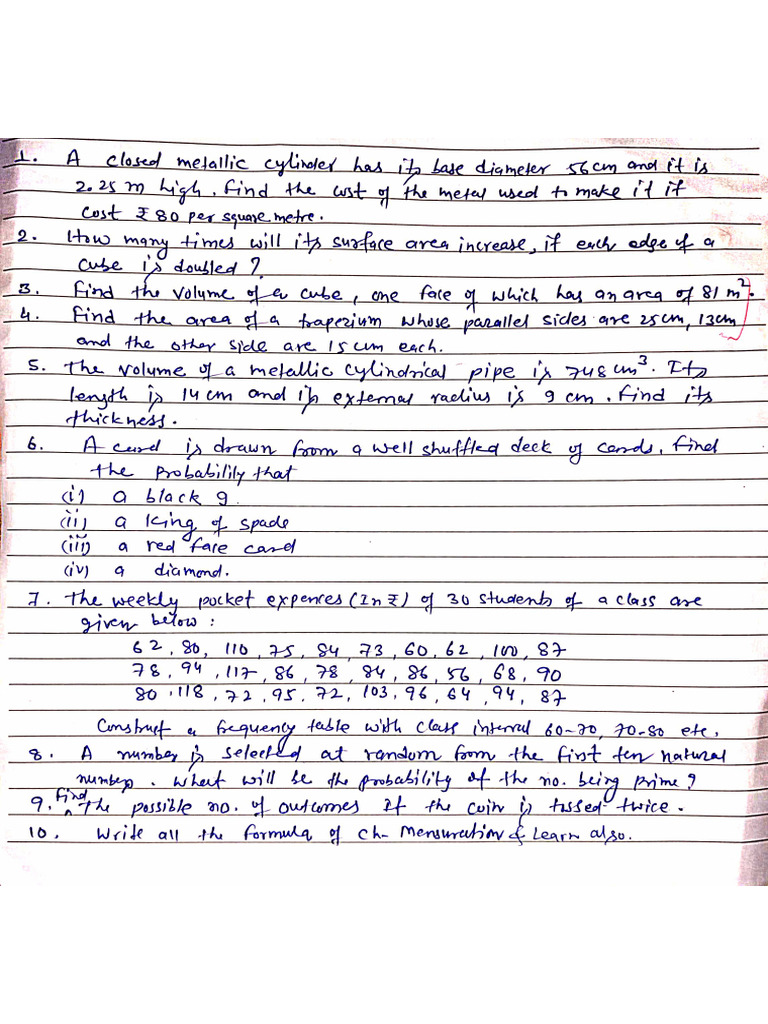 1. A closed metallic cylinder has its base diameter 56cm and it is
2.25 m high. Find the cost of the metal used to make it if
cost ₹ 80 per square metre.
2. How many times will its surface area increase, if each edge of a
cube is doubled?
3. Find the volume of a cube, one face of which has an area of 81 m².
4. Find the area of a trapezium whose parallel sides are 25cm, 13cm
and the other side are 15cm each.
5. The volume of a metallic cylindrical pipe is 748 cm³. Its
length is 14cm and its external radius is 9 cm. Find its
thickness.
6. A card is drawn from a well shuffled deck of cards, find
the probability that
(i) a black 9.
(ii) a king of spade
(iii) a red face card
(iv) a diamond.
7. The weekly pocket expences (In ₹) of 30 students of a class are
given below:
62, 80, 110, 75, 84, 73, 60, 62, 100, 87
78, 94, 117, 86, 78, 84, 86, 56, 68, 90
80, 118, 72, 95, 72, 103, 96, 64, 94, 87
Construct a frequency table with class interval 60-70, 70-80 etc.
8. A number is selected at random from the first ten natural
numbers. What will be the probability of the no. being prime?
9. Find the possible no. of outcomes if the coin is tossed twice.
10. Write all the formula of ch- Mensuration & Learn also.